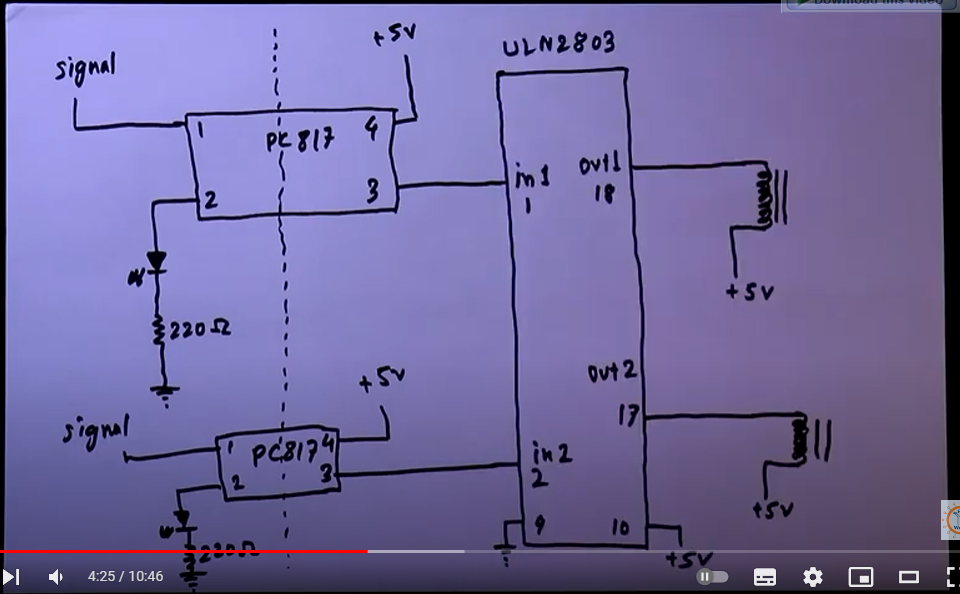 Download this video
signal
+5V
ULN2803
1
PC817
4
2
3
in1
1
out1
18
+5V
220Ω
out2
17
+5V
signal
1
PC817
4
2
3
in2
2
9
10
+5V
220Ω
+5V
4:25 / 10:46